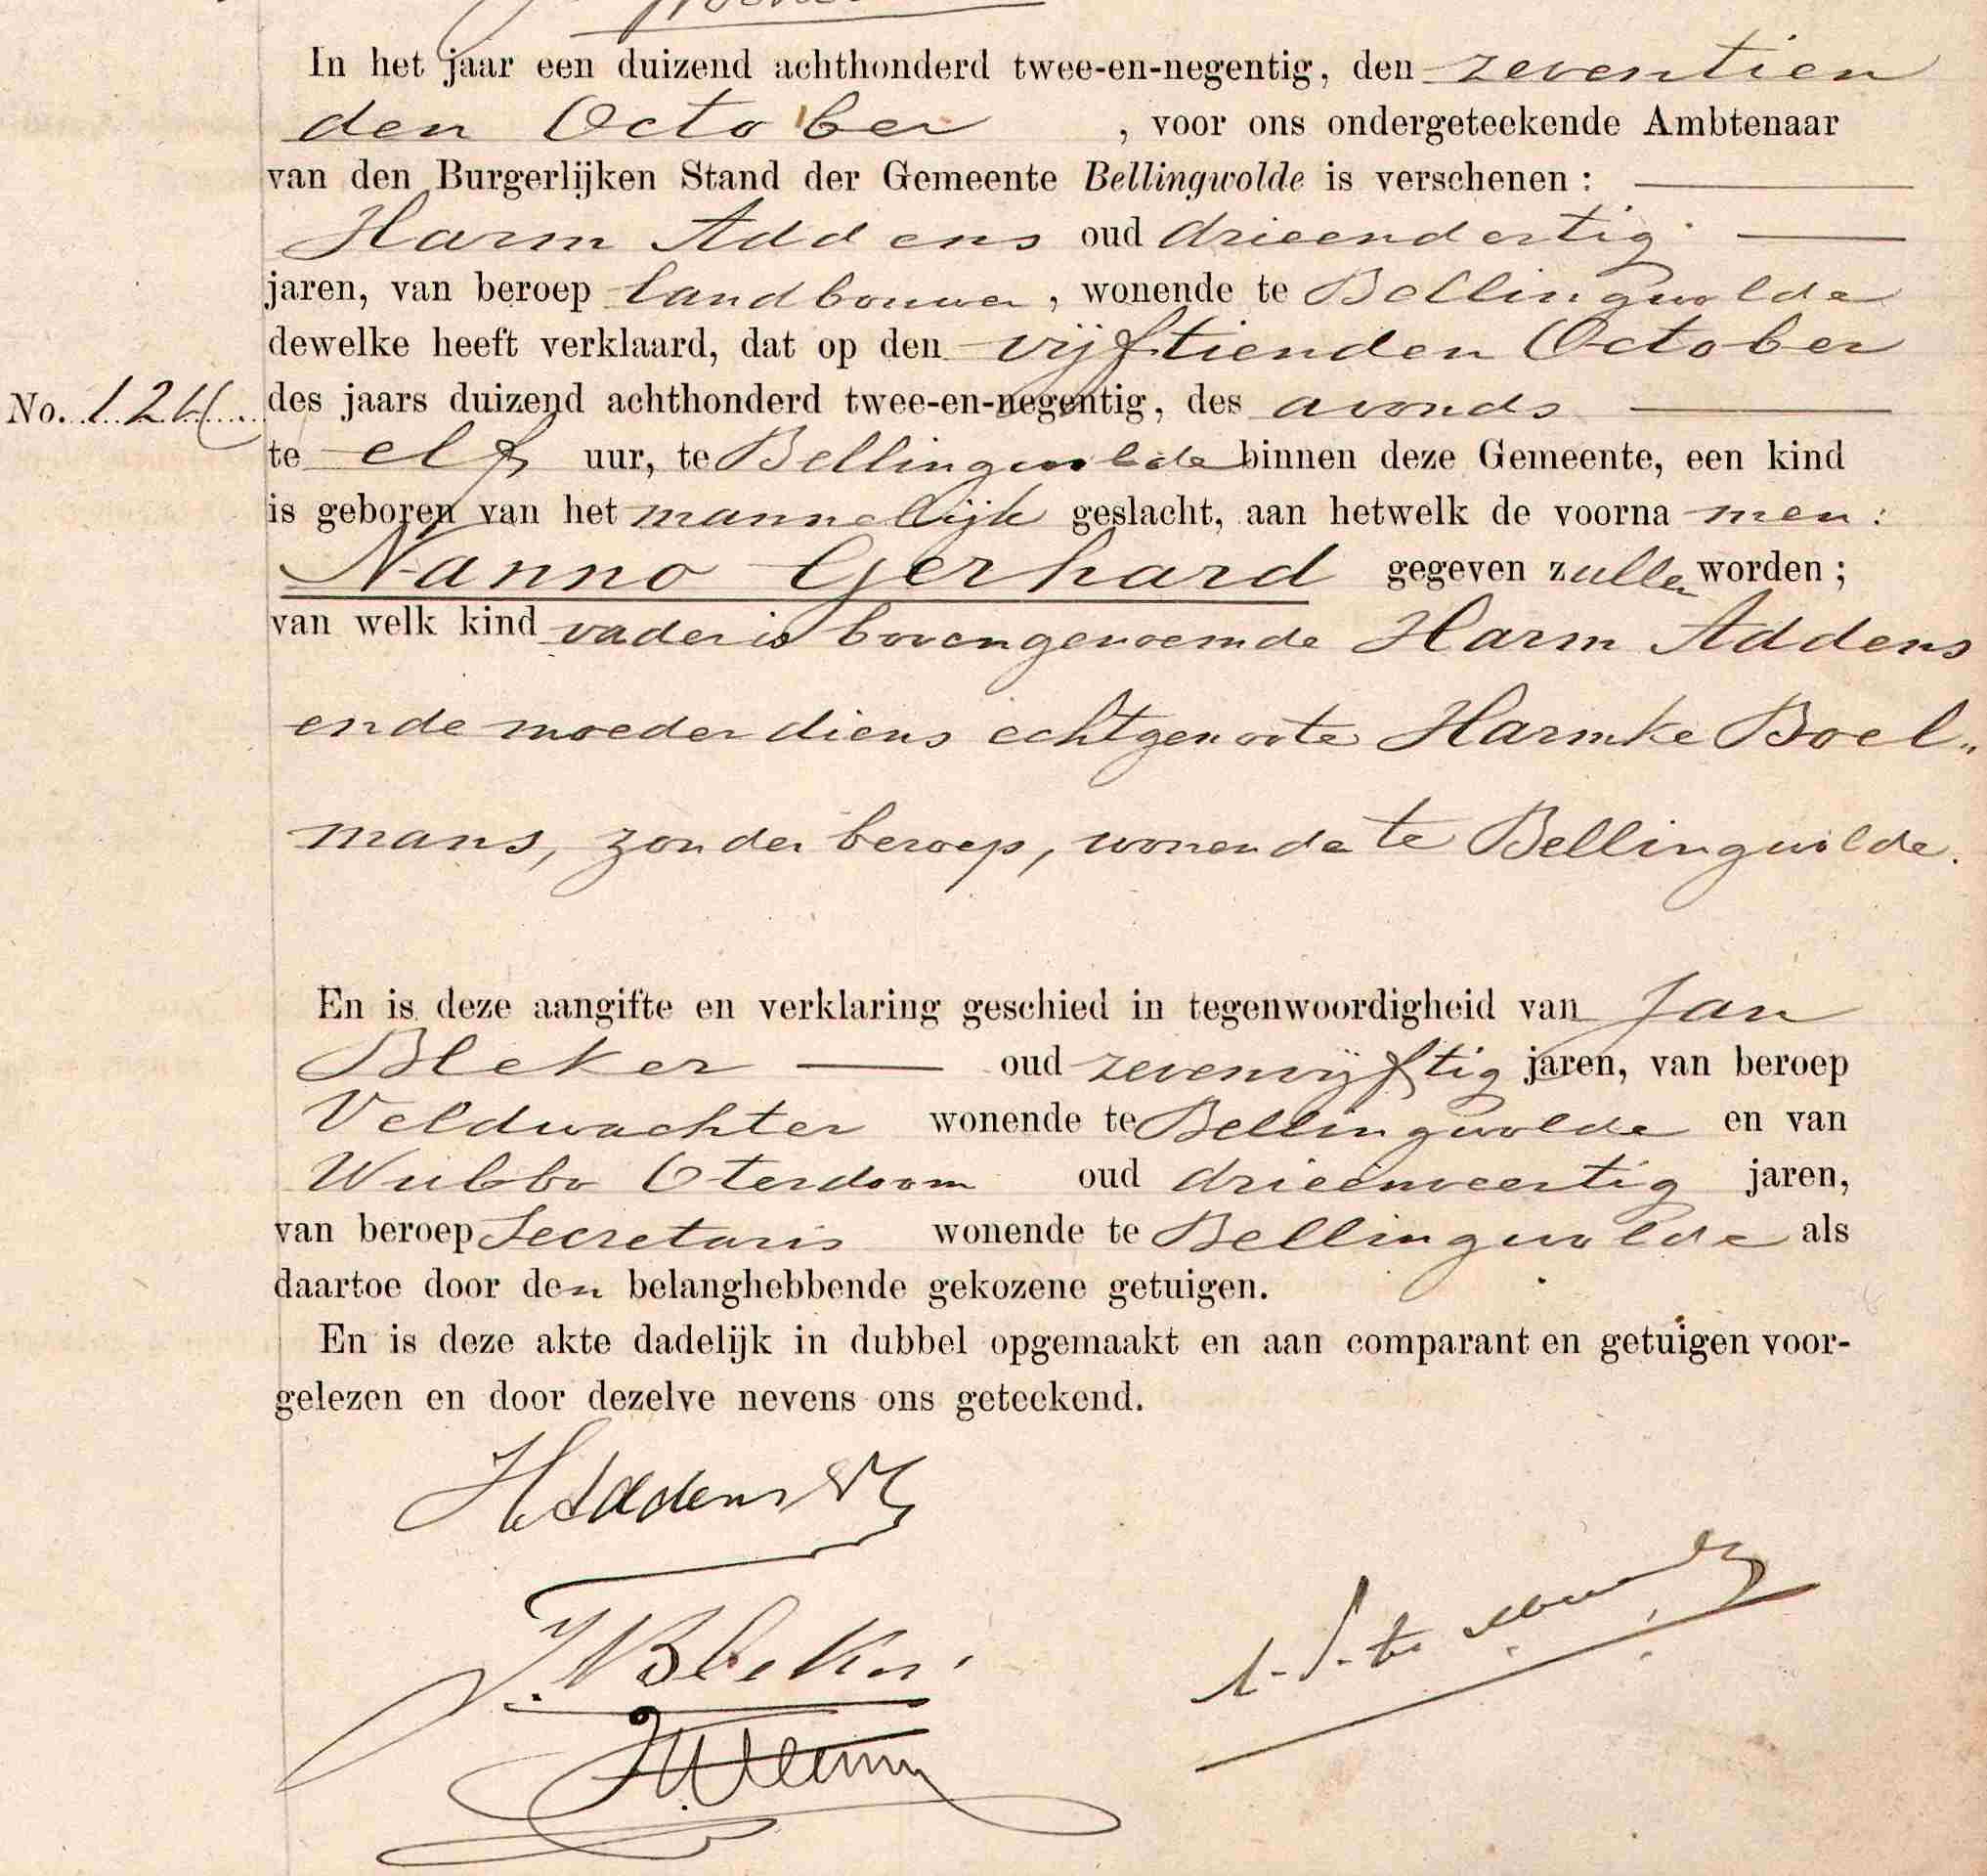 In het jaar een duizend achthonderd twee-en-negentig, den zeventien
den October , voor ons ondergeteekende Ambtenaar
van den Burgerlijken Stand der Gemeente Bellingwolde is verschenen :
Harm Addens oud drieendertig
jaren, van beroep landbouwer, wonende te Bellingwolde
dewelke heeft verklaard, dat op den vijftienden October
No. 124 des jaars duizend achthonderd twee-en-negentig, des avonds
te elf uur, te Bellingwolde binnen deze Gemeente, een kind
is geboren van het mannelijk geslacht, aan hetwelk de voornamen :
Nanno Gerhard gegeven zullen worden ;
van welk kind vader is bovengenoemde Harm Addens
en de moeder diens echtgenoote Harmke Boel„
mans, zonder beroep, wonende te Bellingwolde.
En is deze aangifte en verklaring geschied in tegenwoordigheid van Jan
Bleker oud zevenvijftig jaren, van beroep
Veldwachter wonende te Bellingwolde en van
Wubbo Oterdoom oud drieenveertig jaren,
van beroep Secretaris wonende te Bellingwolde als
daartoe door den belanghebbende gekozene getuigen.
En is deze akte dadelijk in dubbel opgemaakt en aan comparant en getuigen voor-
gelezen en door dezelve nevens ons geteekend.
H Addens
J Bleker